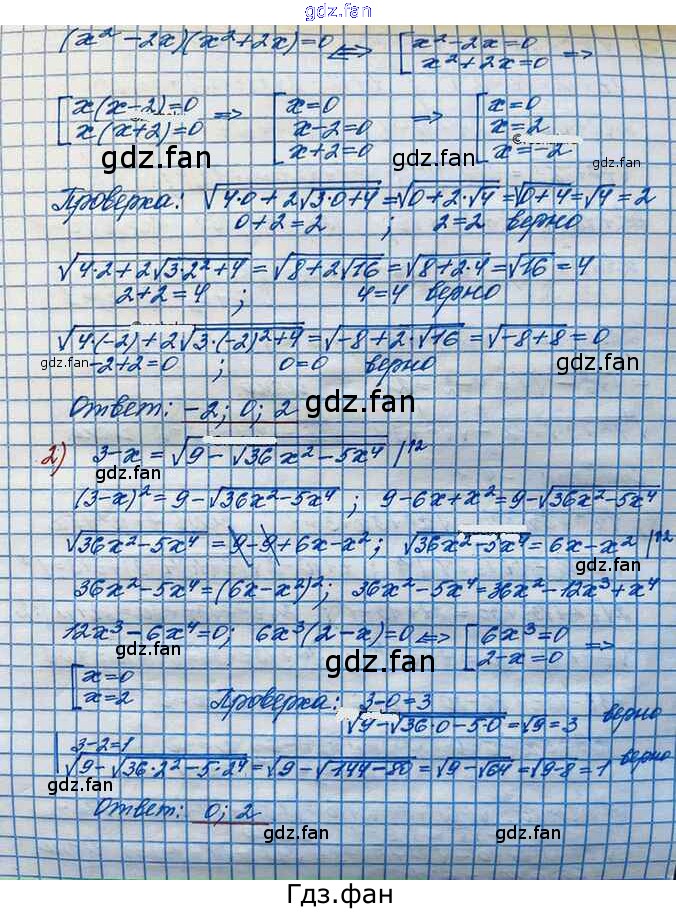 gdz.fan
(x² − 2x)(x² + 2x) = 0 <=> [x² − 2x = 0
x² + 2x = 0 =>
[x(x−2) = 0
x(x+2) = 0 => [x = 0
x − 2 = 0
x + 2 = 0 => [x = 0
x = 2
x = −2
gdz.fan gdz.fan gdz.fan
Проверка: √(4·0 + 2√(3·0+4)) = √(0 + 2·√4) = √(0+4) = √4 = 2
0 + 2 = 2 ; 2 = 2 верно
√(4·2 + 2√(3·2²+4)) = √(8 + 2√16) = √(8 + 2·4) = √16 = 4
2 + 2 = 4 ; 4 = 4 верно
√(4·(−2) + 2√(3·(−2)²+4)) = √(−8 + 2·√16) = √(−8+8) = 0
gdz.fan −2 + 2 = 0 ; 0 = 0 верно gdz.fan
Ответ: −2; 0; 2 gdz.fan
2) 3 − x = √(9 − √(36x² − 5x⁴)) |↑2
(3−x)² = 9 − √(36x² − 5x⁴) ; 9 − 6x + x² = 9 − √(36x² − 5x⁴)
√(36x² − 5x⁴) = 9 − 9 + 6x − x² ; √(36x² − 5x⁴) = 6x − x² |↑2
gdz.fan
36x² − 5x⁴ = (6x − x²)² ; 36x² − 5x⁴ = 36x² − 12x³ + x⁴
12x³ − 6x⁴ = 0 ; 6x³(2 − x) = 0 <=> [6x³ = 0
2 − x = 0 =>
gdz.fan gdz.fan
[x = 0
x = 2 Проверка: 3 − 0 = 3
√(9 − √(36·0 − 5·0)) = √9 = 3 верно
gdz.fan
3 − 2 = 1
√(9 − √(36·2² − 5·2⁴)) = √(9 − √(144 − 80)) = √(9 − √64) = √(9−8) = 1 верно
Ответ: 0; 2
gdz.fan gdz.fan
Гдз.фан